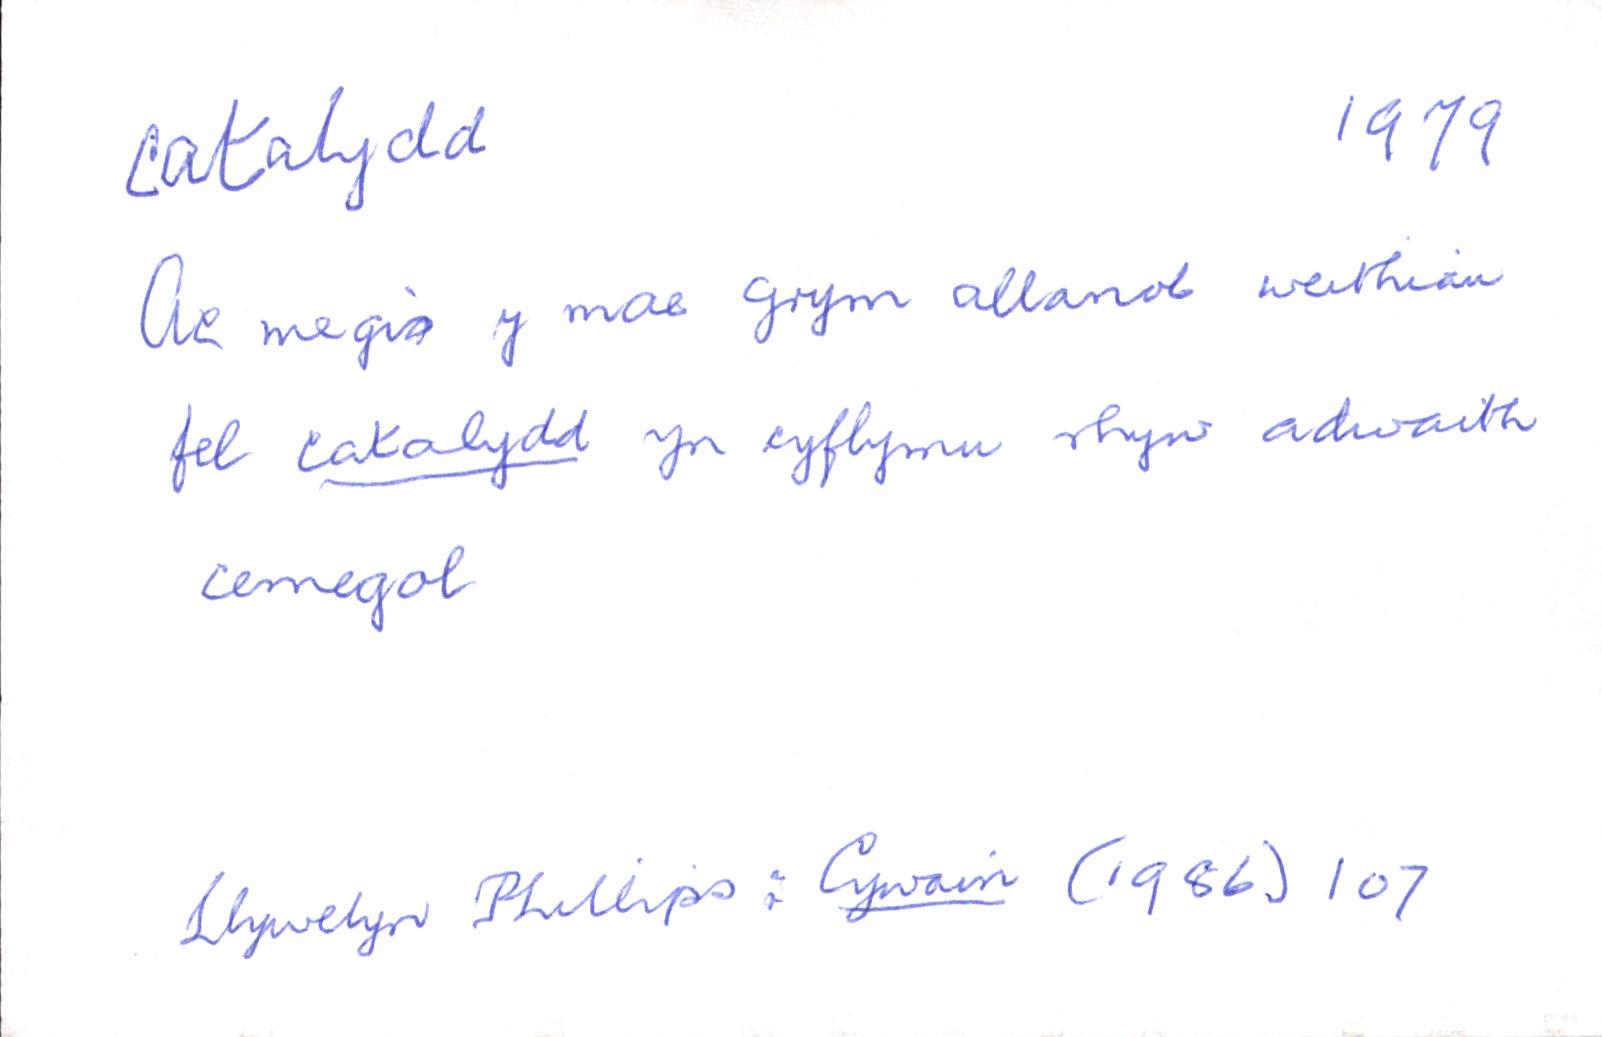 catalydd 1979
Ac megis y mae grym allanol weithiau
fel catalydd yn cyflymu rhyw adwaith
cemegol
Llywelyn Phillips : Cywain (1986) 107